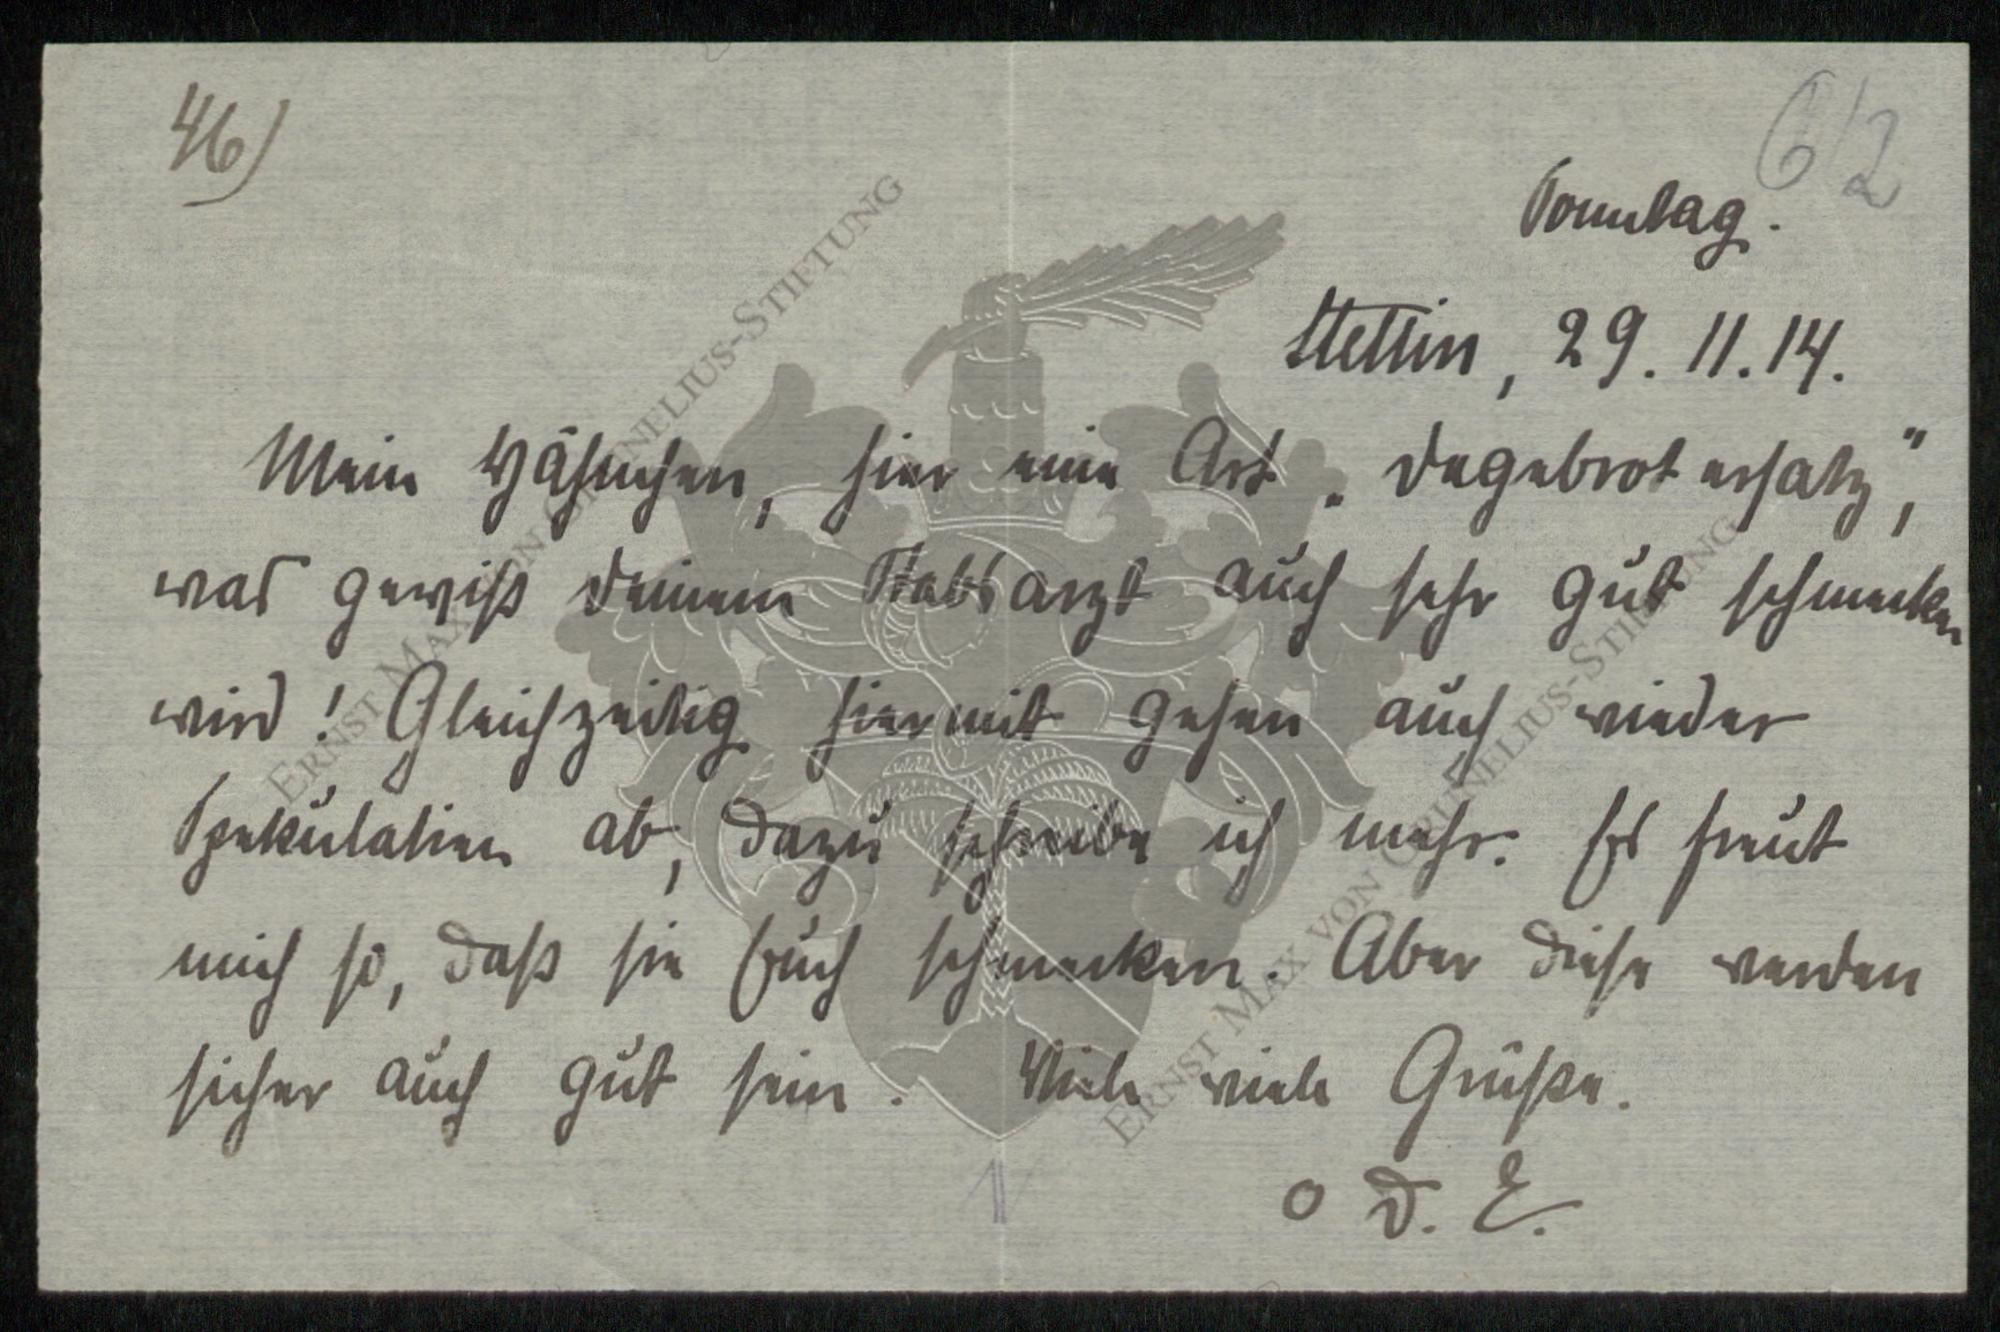 46)
6/2
Sonntag.
Stettin, 29. 11. 14.
Mein Häschen, hier eine Art „Degebrot ersatz",
was gewiß Deinem Stabsarzt auch sehr gut schmecken
wird! Gleichzeitig hiermit gehen auch wieder
Spekulatien ab, dazu schreibe ich mehr. Es freut
mich so, daß sie Euch schmecken. Aber diese werden
sicher auch gut sein. Viele viele Grüße.
o D. E.
ERNST MAX VON GRUNELIUS-STIFTUNG
ERNST MAX VON GRUNELIUS-STIFTUNG